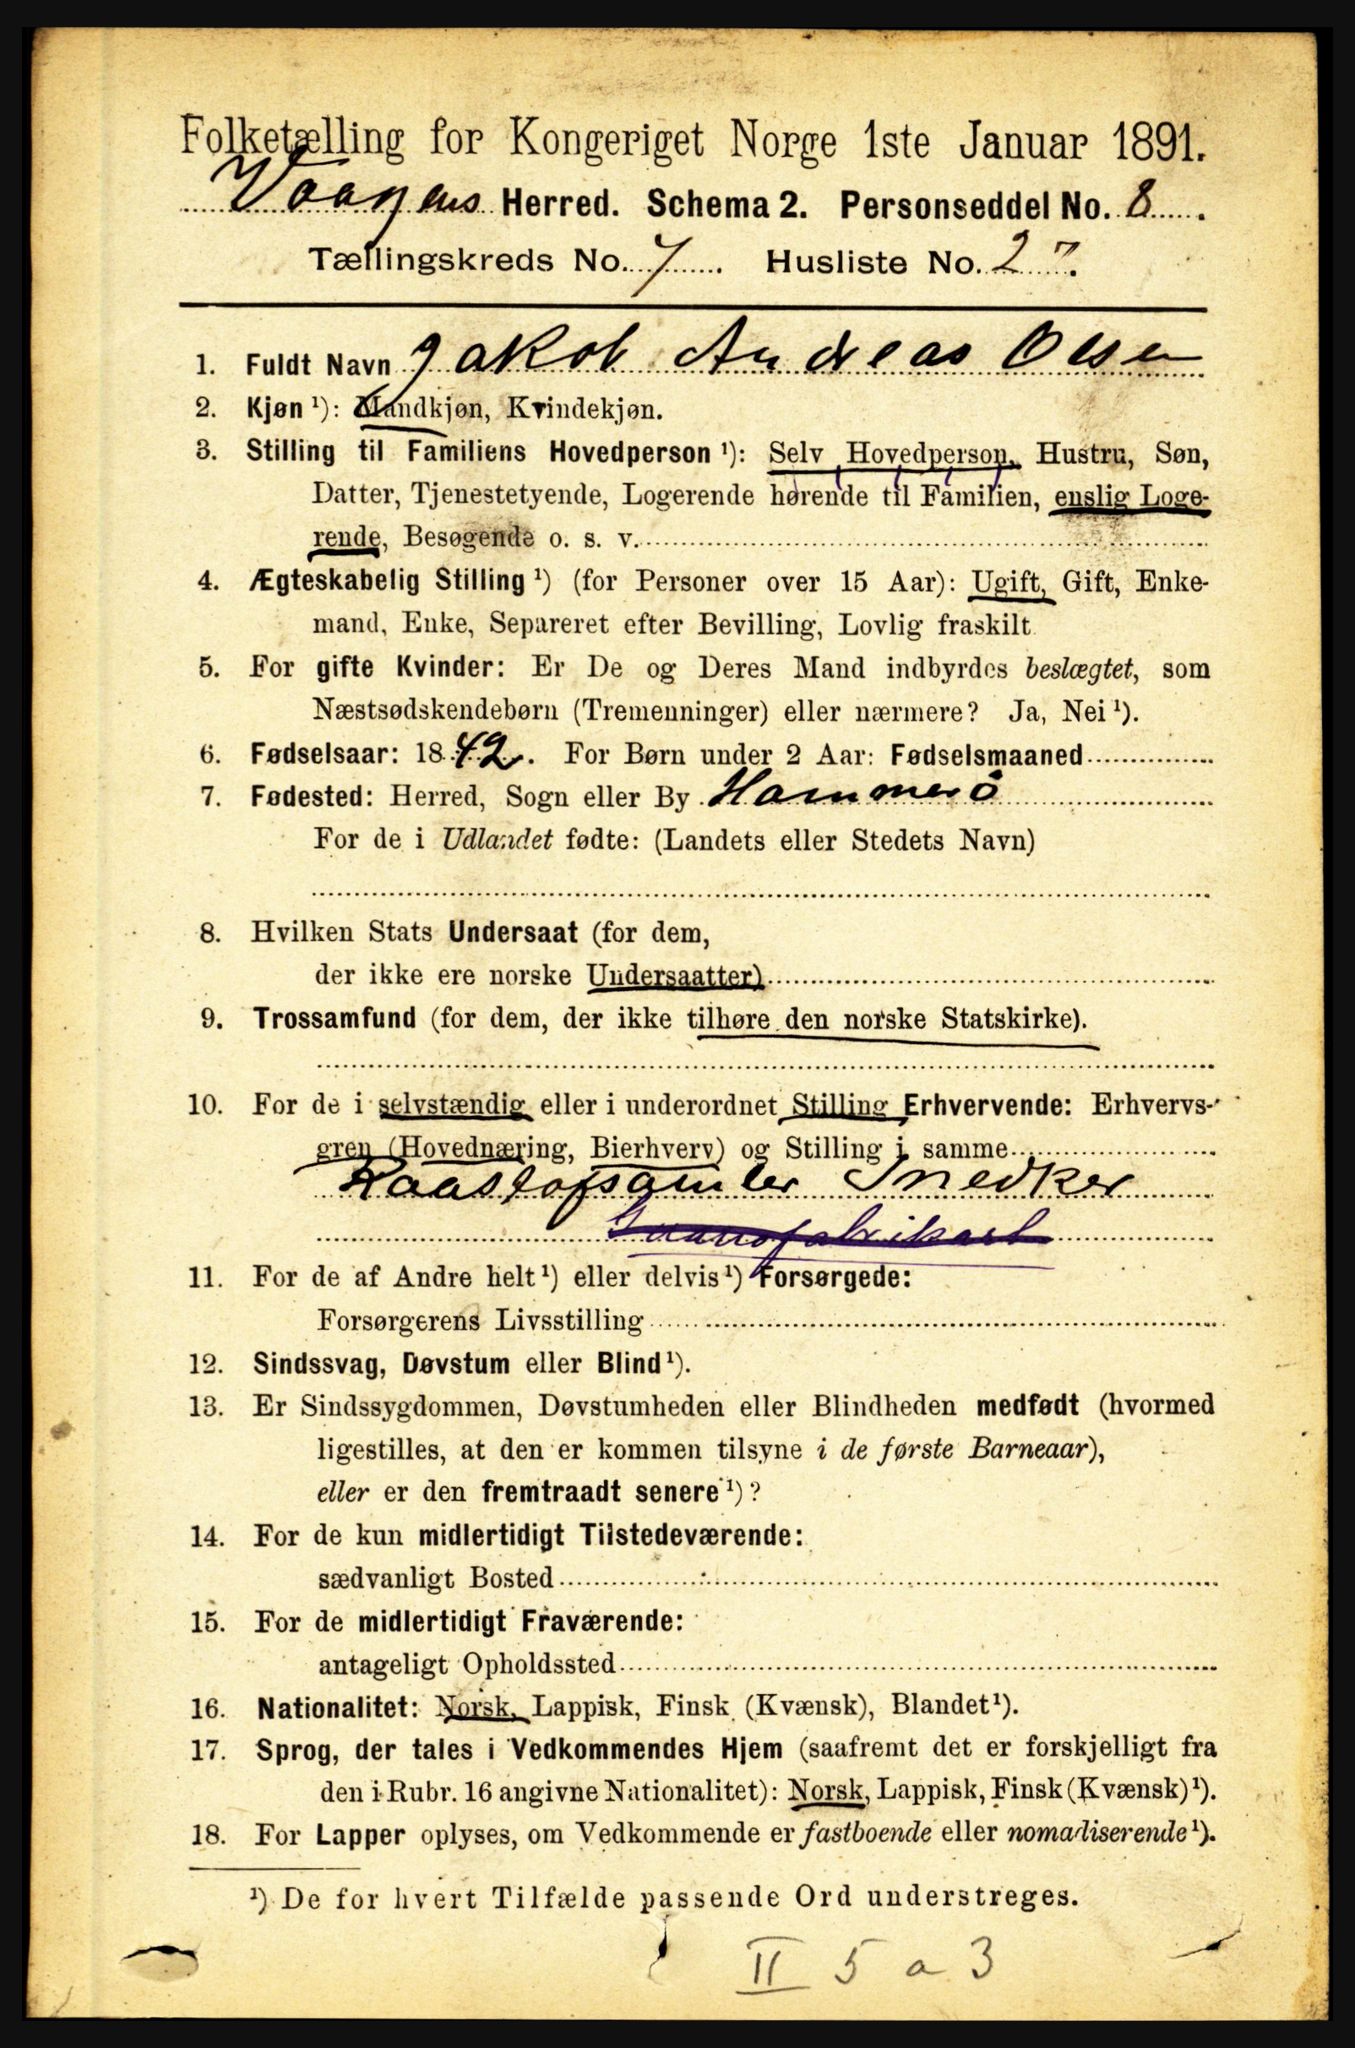 Folketælling for Kongeriget Norge 1ste Januar 1891.
Vaagens Herred. Schema 2. Personseddel No. 8.
Tællingskreds No. 7. Husliste No. 27.
1. Fuldt Navn Jakob Andreas Olsen
2. Kjøn ¹): Mandkjøn, Kvindekjøn.
3. Stilling til Familiens Hovedperson ¹): Selv Hovedperson, Hustru, Søn,
Datter, Tjenestetyende, Logerende hørende til Familien, enslig Loge-
rende, Besøgende o. s. v.
4. Ægteskabelig Stilling ¹) (for Personer over 15 Aar): Ugift, Gift, Enke-
mand, Enke, Separeret efter Bevilling, Lovlig fraskilt
5. For gifte Kvinder: Er De og Deres Mand indbyrdes beslægtet, som
Næstsødskendebørn (Tremenninger) eller nærmere? Ja, Nei ¹).
6. Fødselsaar: 1842. For Børn under 2 Aar: Fødselsmaaned
7. Fødested: Herred, Sogn eller By Hammerö
For de i Udlandet fødte: (Landets eller Stedets Navn)
8. Hvilken Stats Undersaat (for dem,
der ikke ere norske Undersaatter)
9. Trossamfund (for dem, der ikke tilhøre den norske Statskirke).
10. For de i selvstændig eller i underordnet Stilling Erhvervende: Erhvervs-
gren (Hovednæring, Bierhverv) og Stilling i samme
Raastofsamler Snedker
Guanofabrikarb
11. For de af Andre helt ¹) eller delvis ¹) Forsørgede:
Forsørgerens Livsstilling
12. Sindssvag, Døvstum eller Blind ¹).
13. Er Sindssygdommen, Døvstumheden eller Blindheden medfødt (hvormed
ligestilles, at den er kommen tilsyne i de første Barneaar),
eller er den fremtraadt senere ¹)?
14. For de kun midlertidigt Tilstedeværende:
sædvanligt Bosted
15. For de midlertidigt Fraværende:
antageligt Opholdssted
16. Nationalitet: Norsk, Lappisk, Finsk (Kvænsk), Blandet ¹).
17. Sprog, der tales i Vedkommendes Hjem (saafremt det er forskjelligt fra
den i Rubr. 16 angivne Nationalitet): Norsk, Lappisk, Finsk (Kvænsk) ¹).
18. For Lapper oplyses, om Vedkommende er fastboende eller nomadiserende ¹).
¹) De for hvert Tilfælde passende Ord understreges.
II 5 a 3